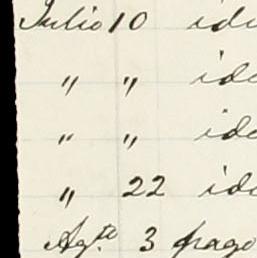 Julio 10 ide
" " ide
" " ide
" 22 ide
Agto 3 pago